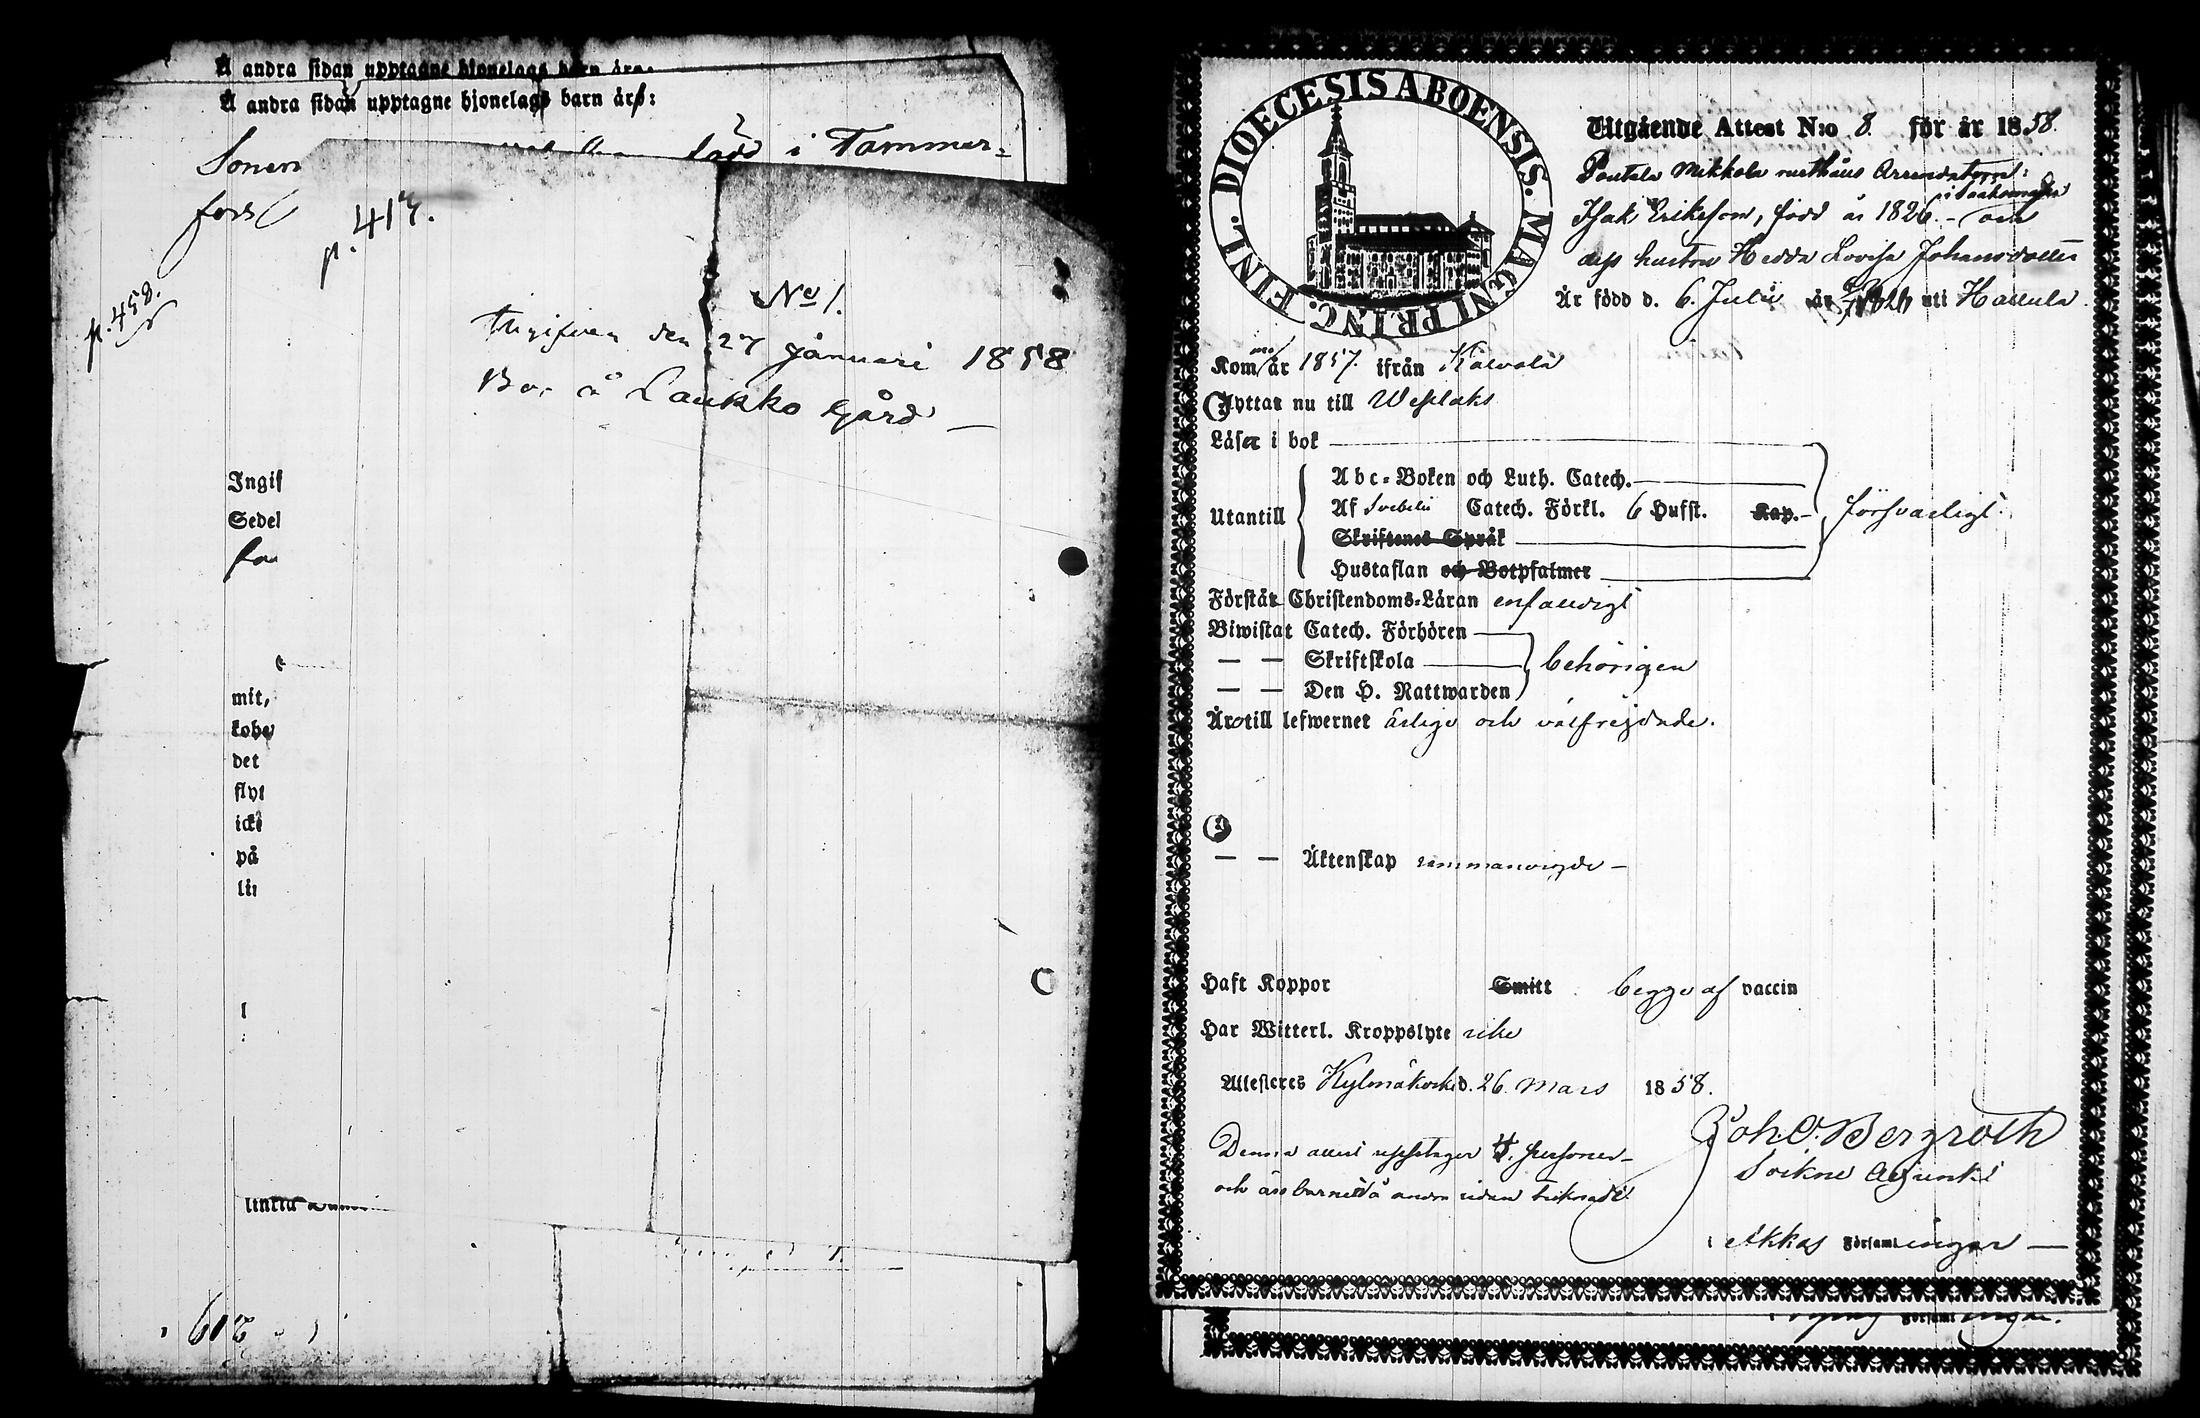 Å andra sidan upptagne hjonelags barn äro:
Å andra sidan upptagne hjonelags barn äro:
Sonen född i Tammer=
fors
p. 417.
p. 458.
No 1.
den 27 Januari 1858
Bor å Laukko gård —
Ingif
Sedel
mit,
det
flyt
icke
på
DIOECESIS ABOENSIS. MAGNI PRINC. FINL.
Utgående Attest N:o 8. för år 1858.
Mikkola rusthåls
Isak Eriksson, född år 1826. — och
dess hustru Hedda Lovisa Johansdotter
Är född d. 6. Juli år uti Hattula
Kommo år 1857. ifrån Kalvola
Flyttar nu till Wesilaks
Läser i bok
Abc=Boken och Luth. Catech.
Utantill Af Svebelii Catech. Förkl. 6 Hufst. Kap. försvarligt
Skriftenes Språk
Hustaflan och Botpsalmer
Förstår Christendoms=Läran enfaldigt
Biwistat Catech. Förhören
— — Skriftskola behörigen
— — Den H. Nattwarden
Äro till lefwernet ärlige och välfrejdade.
— — Äktenskap sammanvigde —
Haft Koppor Smitt begge af vaccin
Har Witterl. Kroppslyte icke
Attesteres Kylmäkoski d. 26. Mars 1858.
Joh. O. Bergroth
Denna attest upptager 4. personer
Sockne Adjunkt
och äro barnen å andra sidan
i Akkas Församlingar —
Församl